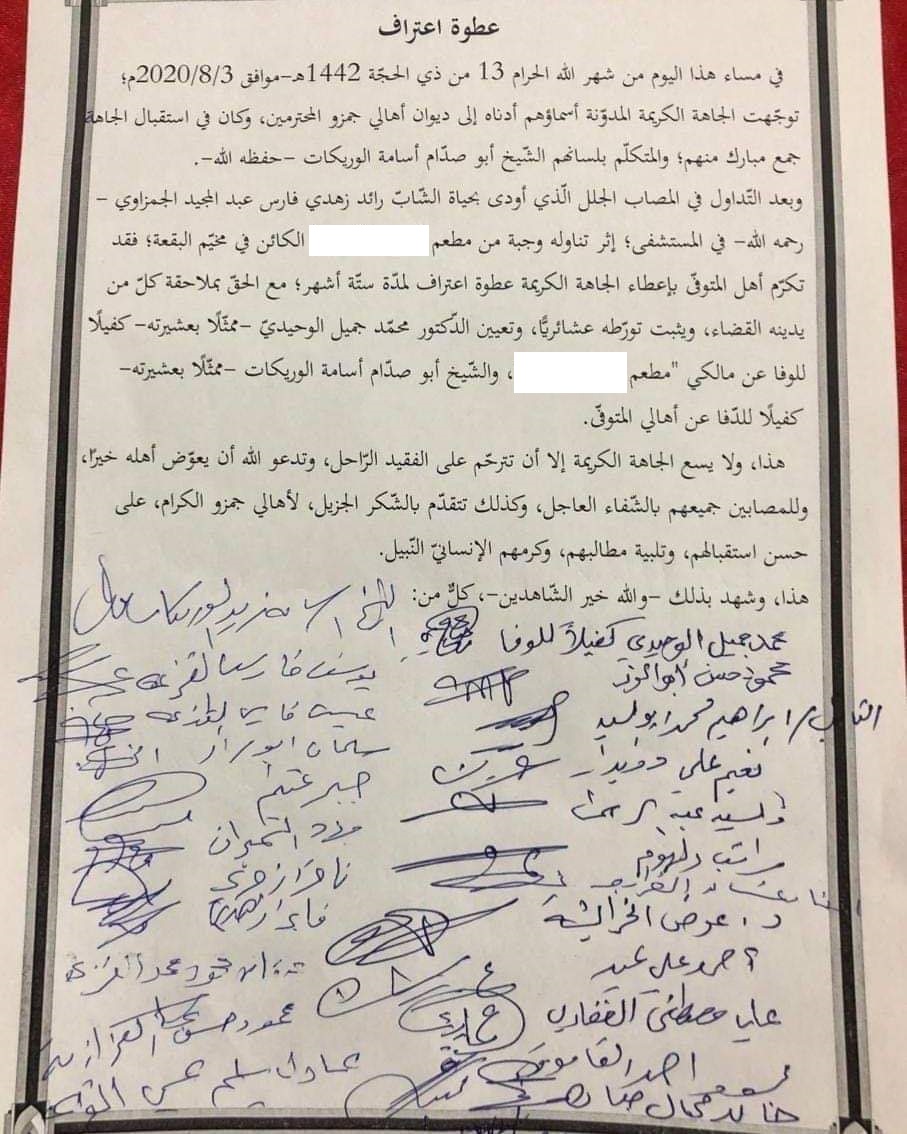 عطوة اعتراف
في مساء هذا اليوم من شهر الله الحرام 13 من ذي الحجّة 1442هـ-موافق 2020/8/3م؛
توجّهت الجاهة الكريمة المدوّنة أسماؤهم أدناه إلى ديوان أهالي جمزو المحترمين، وكان في استقبال الجاهة
جمع مبارك منهم؛ والمتكلّم بلسانهم الشّيخ أبو صدّام أسامة الوريكات -حفظه الله-.
وبعد التّداول في المصاب الجلل الّذي أودى بحياة الشّابّ رائد زهدي فارس عبد المجيد الجمزاوي -
رحمه الله- في المستشفى؛ إثر تناوله وجبة من مطعم الكائن في مخيّم البقعة؛ فقد
تكرّم أهل المتوفّى بإعطاء الجاهة الكريمة عطوة اعتراف لمدّة ستّة أشهر؛ مع الحقّ بملاحقة كلّ من
يدينه القضاء، ويثبت تورّطه عشائريًّا، وتعيين الدّكتور محمّد جميل الوحيديّ -ممثّلًا بعشيرته- كفيلًا
للوفا عن مالكي "مطعم ، والشّيخ أبو صدّام أسامة الوريكات -ممثّلًا بعشيرته-
كفيلًا للدّفا عن أهالي المتوفّى.
هذا، ولا يسع الجاهة الكريمة إلا أن تترحّم على الفقيد الرّاحل، وتدعو الله أن يعوّض أهله خيرًا،
وللمصابين جميعهم بالشّفاء العاجل، وكذلك تتقدّم بالشّكر الجزيل، لأهالي جمزو الكرام، على
حسن استقبالهم، وتلبية مطالبهم، وكرمهم الإنسانيّ النّبيل.
هذا، وشهد بذلك -والله خير الشّاهدين-، كلٌّ من:
محمد جميل الوحيدي كفيلاً للوفا
محمود حسن أبو
يوسف فارس
ابراهيم محمد ابو
سلمان ابو
نعيم علي
جبر غنيم
راتب
د. عوض الخرابشة
احمد علي عيد
محمود حسن
عليا مصطفى الغفاري
احمد
عادل سليم
خالد جمال